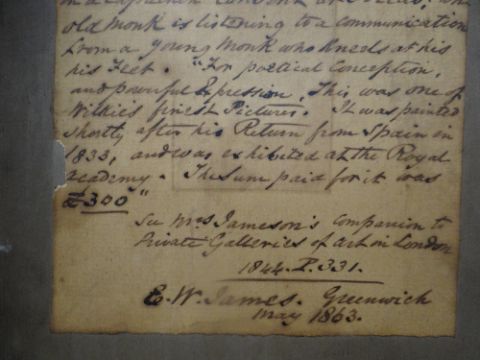 in a Capuchin Convent at Toledo. an
old Monk is listening to a communication
from a Young Monk who kneels at his
his Feet. "For poetical Conception,
and powerful Expression, This was one of
Wilkie's finest Pictures. It was painted
shortly after his Return from Spain in
1833, and was exhibited at the Royal
Academy. The Sum paid for it was
£300"
See Mrs Jameson's Companion to
Private Galleries of Art in London
1844. P. 331.
E. W. James. Greenwich
May 1863.